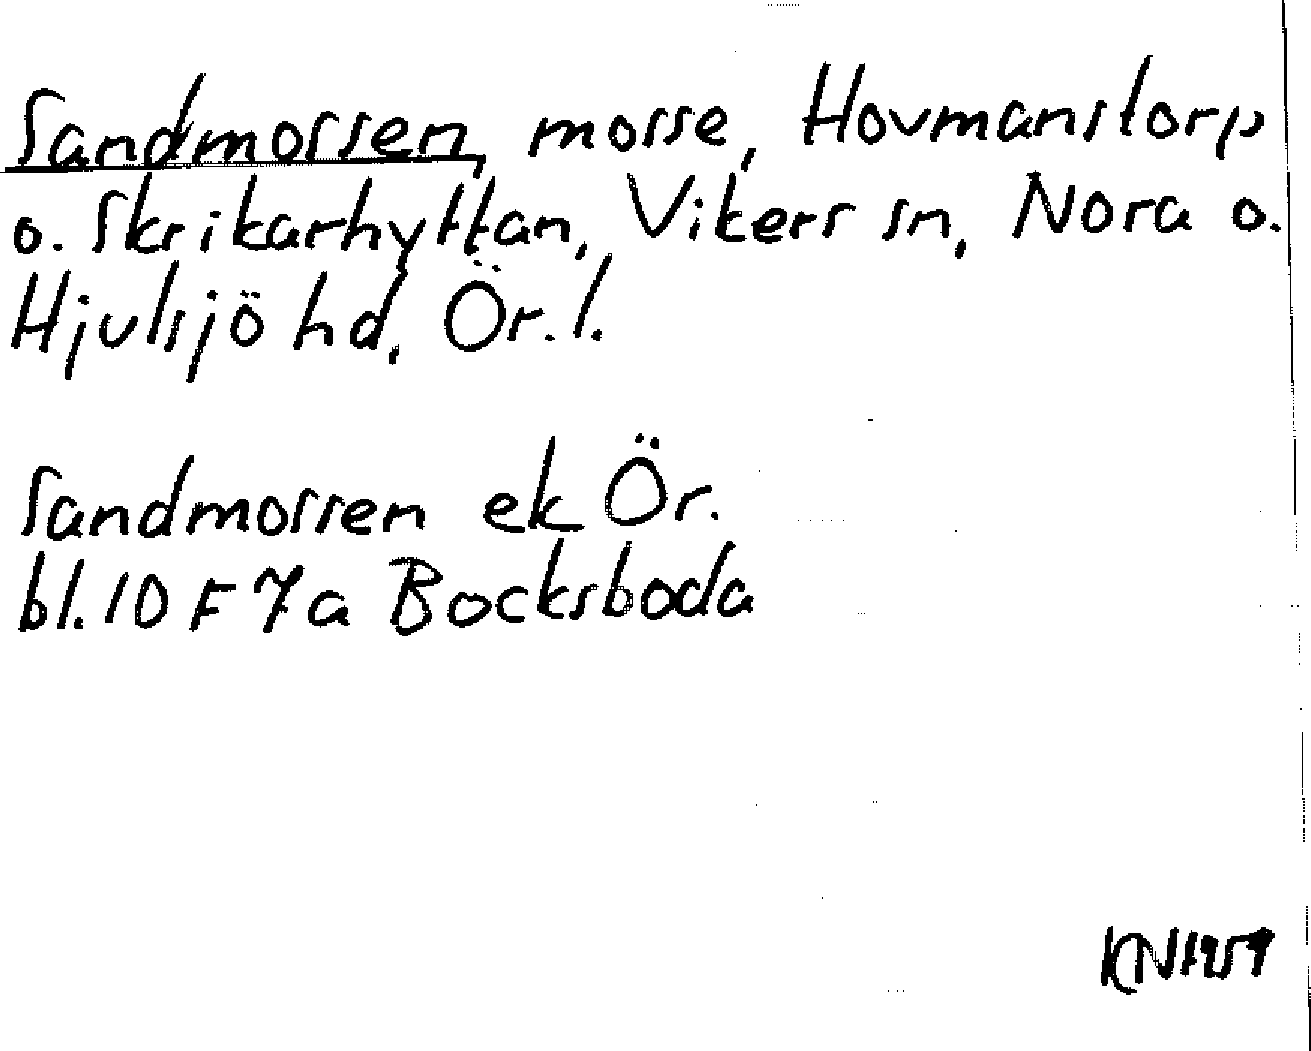 Sandmossen, mosse, Hovmanstorp
o. Skrikarhyttan, Vikers sn, Nora o.
Hjulsjö hd, Ör. l.
Sandmossen ek Ör.
bl. 10 F 7a Bocksboda